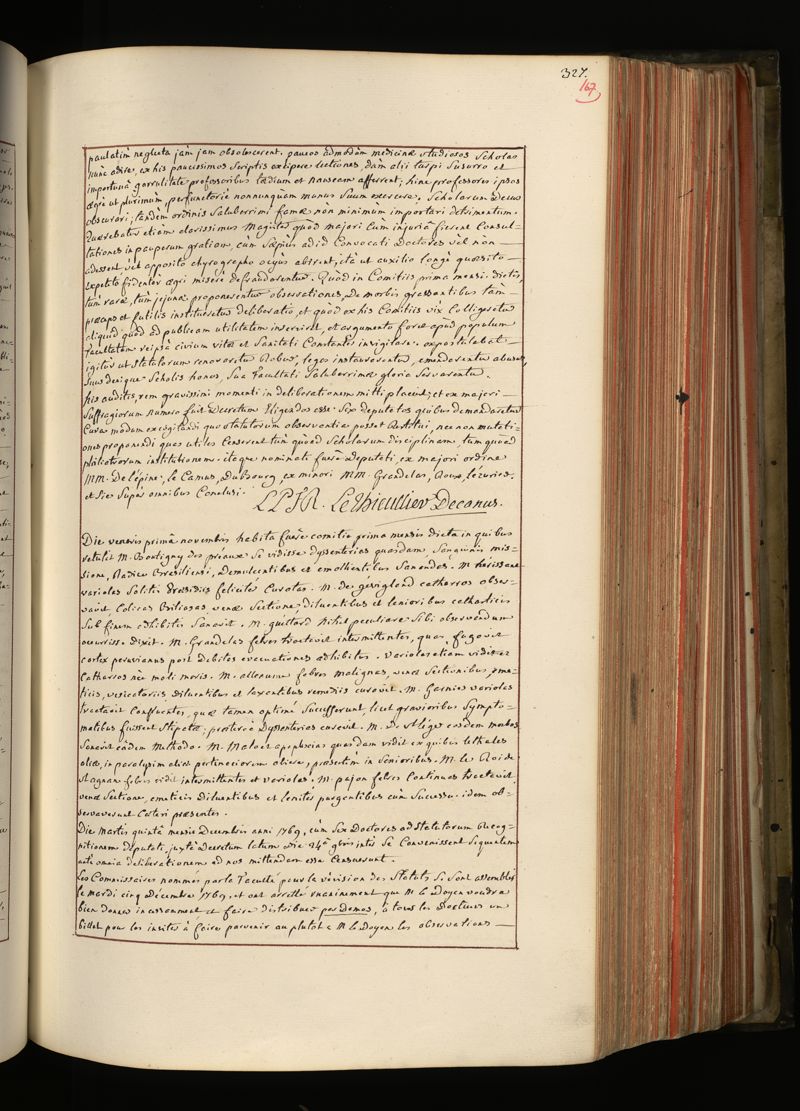 327.
167
paulatim neglecta jam jam obsolescerent. paucos admodùm medicinæ studiosos Scholas
nunc adire, ex his paucissimos Scriptis excipere lectiones, dùm alii turpi susurro et
importunâ garrulitate professoribus tædium et nauseam afferrent; hinc professores ipsos
ægrè ut plurimùm, perfunctoriè nonnunquam munus suum exercere, Scholarum Decus
obscurari; tandem ordinis Saluberrimi famæ non minimum importari detrimentum.
Quærebatur etiam clarissimus Magister quod majori cum injuriâ fierent Consul-
tationes in pauperum gratiam, cùm Sæpiùs ad id Convocati Doctores vel non
adessent vel apposito chyrographo ocyùs abirent, ità ut auxilio longè quæsito
expetito fidenter ægri miserè defraudarentur. Quod in Comitiis prima mensis dictis,
tùm raræ, tùm jejunæ proponerentur observationes, de morbis grassantibus tàm
præceps et futilis institueretur deliberatio, et quod ex his Comitiis vix Colligeretur
aliquid quod ad publicam utilitatem inserviret, et argumento foret apud populum
facultatem reipsâ civium vitæ et Sanitati Constanter invigilare. expostulabat
igitur ut Statutorum renovaretur Robur, leges instaurarentur, emendarentur abusus,
suus denique Scholis honos, Sua facultati Saluberrimæ gloria Servarentur.
his auditis, rem gravissimi momenti in deliberationem mitti placuit; et ex majori
Suffragiorum numero fuit Decretum Eligendos esse Sex deputatos quibus demandaretur
Cura modum excogitandi quo statutorum observantia posset Restitui, nec non mutati-
ones proponendi quas utiles Censerent tùm quoad Scholarum disciplinam, tum quoad
philiatrorum institutionem. itaque nominati fuere deputati, ex majori ordine
MM. De l'épine, le Camus, Dubourg, ex minori MM. Grandelas, Roux, lézurier.
et Sic Super omnibus Conclusi.
LPFR. LeThieullier Decanus.
Die veneris primâ novembris habita fuere comitia prima mensis dicta in quibus
retulit M. Boutigny des préaux Se vidisse dyssenterias quasdam Sanguinis mis-
sione, Radice Brasiliensi, demulcentibus et emollientibus Sanandas. M. herissant
variolas Solitis præsidiis feliciter Curatas. M. De gevigland catharros obser-
vavit, Colicas Biliosas venæ Sectione, diluentibus et lenioribus catharticis
Sub finem adhibitis Sanavit. M. guettard nihil peculiare Sibi observandum
occurrisse Dixit. M. Grandelas febres tractavit intermittentes, quas fugavit
cortex peruvianus post debitas evacuationes adhibitus. variolas etiam vidit et
Catharros nec mali moris. M. alleaume febres malignas, venæ Sectionibus eme-
ticis, vesicatoriis diluentibus et laxantibus remediis curavit. M. Garnier variolas
tractavit Confluentes, quæ tamen optimè Successerunt, licet gravioribus Sympto-
matibus fuissent Stipatæ; prætereà Dyssenterias curavit. M. De St léger eosdem morbos
Sanavit eâdem methodo. M. Maloet apoplexias quasdam vidit ex quibus lethales
aliæ, in paralysim aliæ pertinaciorum abiere, præsertim in Senioribus. M. le Roi de
St agnan febres vidit intermittentes et variolas. M. pajon febres Continuas tractavit
venæ Sectione, emeticis Diluentibus et leniter purgentibus cùm Successu. idem ob-
servaverunt Cæteri præsentes.
Die Martis quintâ mensis Decembris anni 1769, cùm Sex Doctores ad Statutorum Recog-
nitionem Deputati, juxtà Decretum latum die 24â 9bris inter Se Convenissent Sequentem
deliberationem ad nos mittendam esse Censuerunt.
Les Commissaires nommés par la Faculté pour la révision des Statuts Se Sont assemblés
le mardi cinq Décembre 1769, et ont arrêté unanimement que M. le Doyen voudra
bien donner incessamment et faire distribuer per Domos, à tous les Docteurs un
billet pour les inviter à faire parvenir au plutôt à M. le Doyen les observations